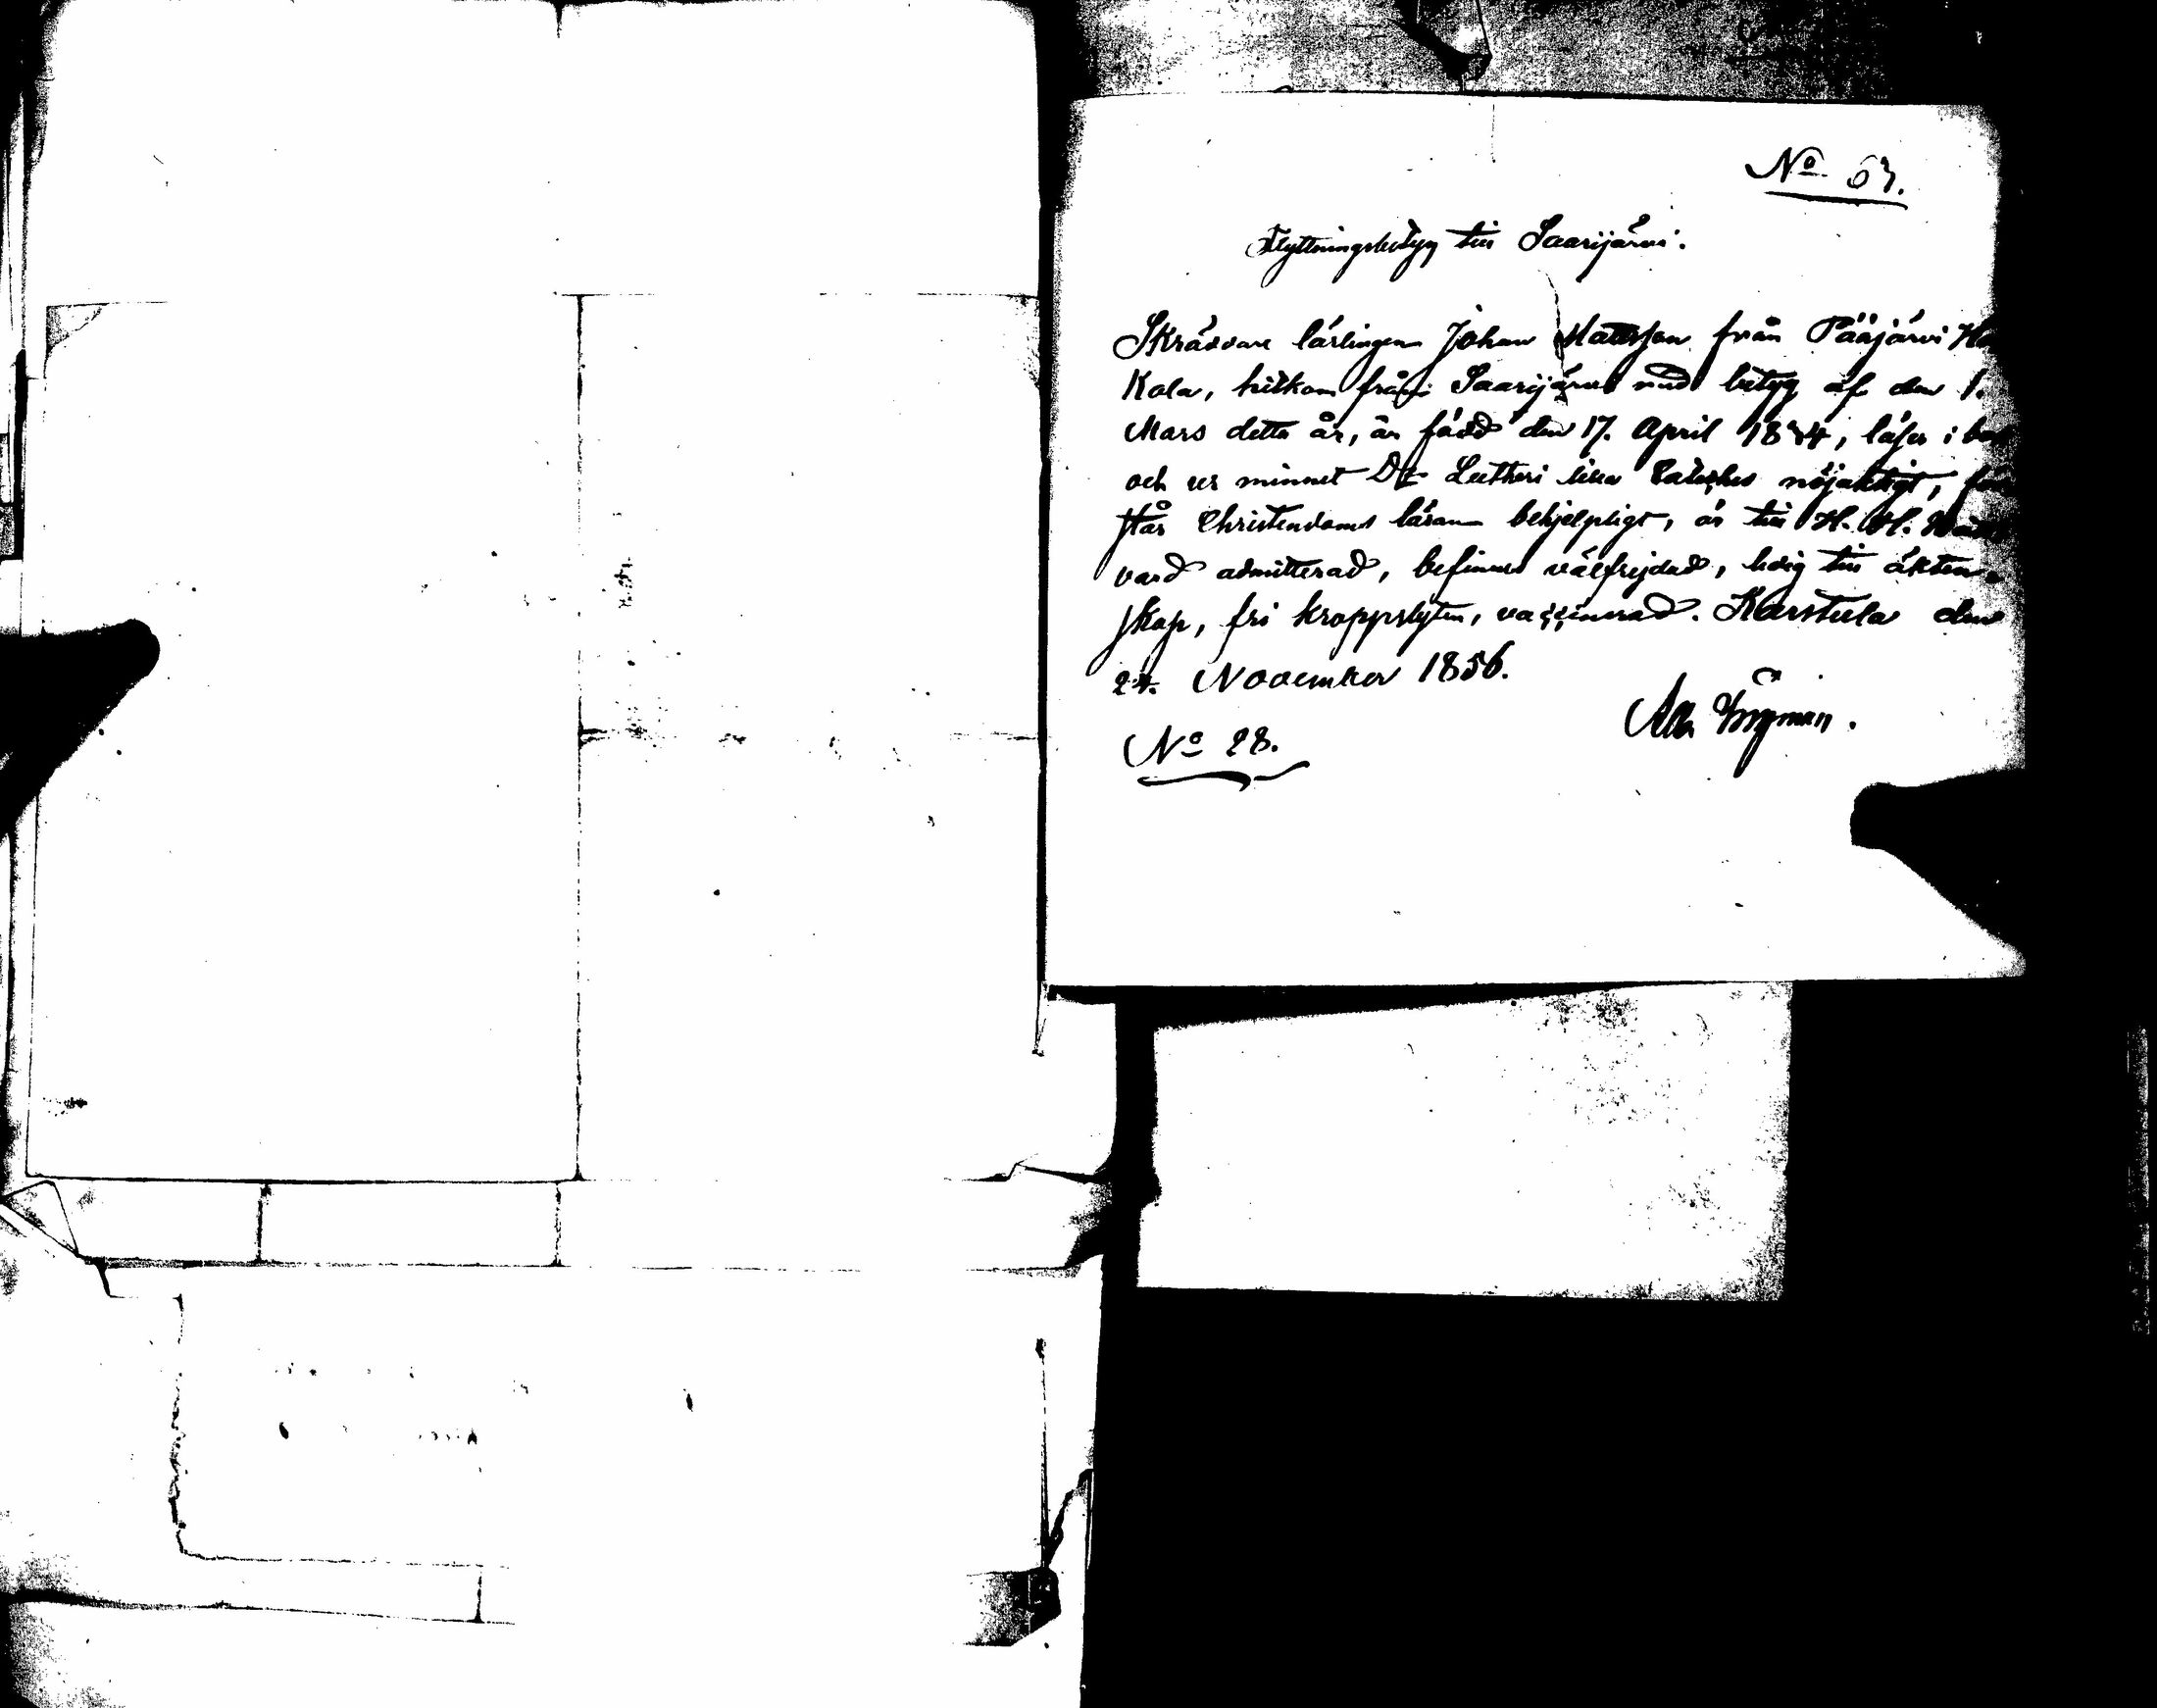 No 67.
Flyttningsbetyg till Saarijärvi.
Skräddare lärlingen Johan Mattsson från Pääjärvi
Kola, hitkom från Saarijärvi med betyg af den 1.
Mars detta år, är född den 17. April, läser i
och ur minnet Dr Lutheri lilla Cateches nöjaktigt, för
står Christendoms läran behjelpligt, är till H. H.
vard admitterad, befinnes välfrejdad, ledig till äkten-
skap, fri kroppslyten, vaccinerad. Karstula den
24. November 1856.
No 28.